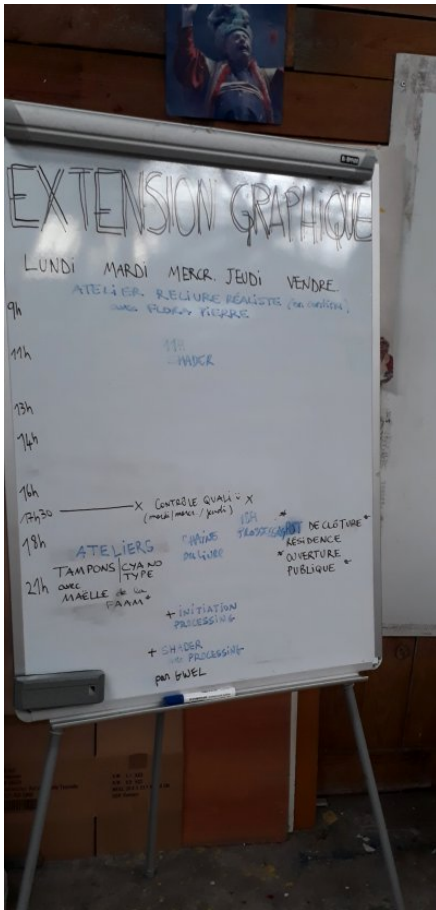 EXTENSION GRAPHIQUE
LUNDI MARDI MERCR. JEUDI VENDRE.
ATELIER RELIURE RÉALISTE
9h avec FLORA PIERRE
11h 11H
SHADER
13h
14h
16h
17h30 X CONTRÔLE QUALI X
(mardi/mercr./jeudi)
18h ATELIERS CHAÎNE DU LIVRE DE CLÔTURE *
RÉSIDENCE
* OUVERTURE
PUBLIQUE *
21h TAMPONS / CYANOTYPE
avec
MAËLLE de la
FAAM *
+ INITIATION
PROCESSING
+ SHADER
PROCESSING
par GWEL